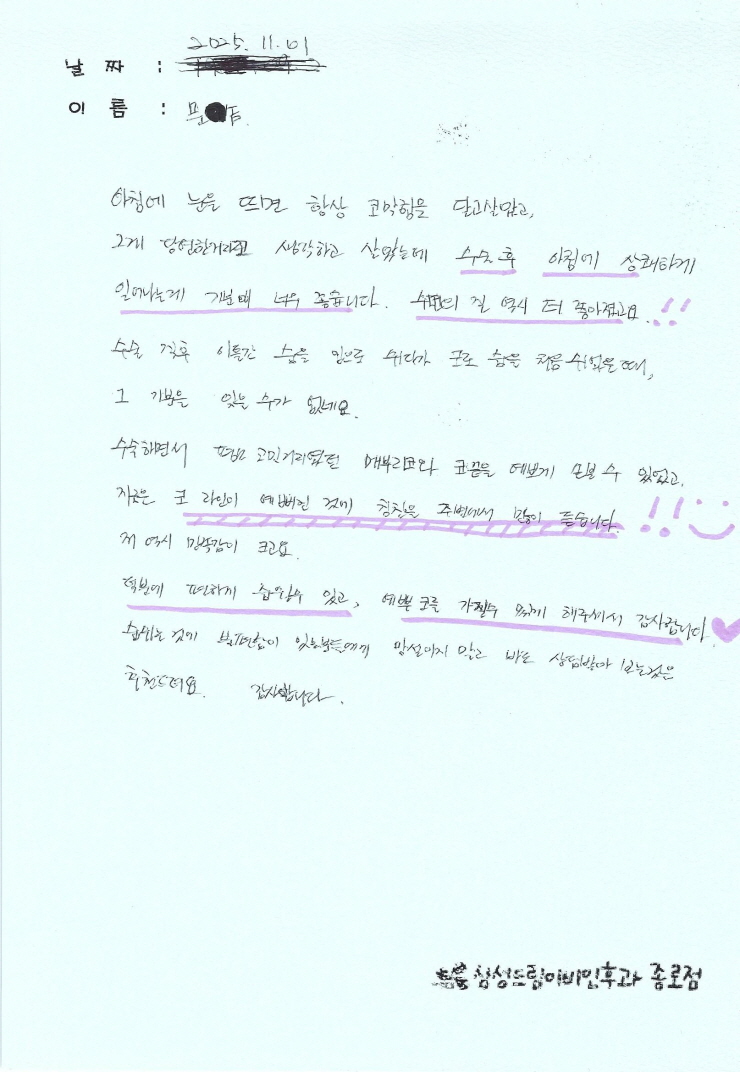 날 짜 : 2025. 11. 01
이 름 : 문
아침에 눈을 뜨면 항상 코막힘을 달고살았고,
그게 당연한거라고 생각하고 살았는데 수술 후 아침에 상쾌하게
일어나는게 기분이 너무 좋습니다. 수면의 질 역시 더 좋아졌고요.!!
수술 직후 이틀간 숨을 입으로 쉬다가 코로 숨을 처음 쉬었을때,
그 기분을 잊을 수가 없네요.
수술하면서 평소 고민거리였던 매부리코와 코끝을 예쁘게 모을 수 있었고,
지금은 코 라인이 예뻐진 것에 칭찬을 주변에서 많이 듣습니다. !!
저 역시 만족감이 크고요.
덕분에 편하게 숨쉴수 있고, 예쁜 코를 가질수 있게 해주셔서 감사합니다
숨쉬는 것에 불편함이 있는분들에게 망설이지 말고 바로 상담받아 보는것을
추천드려요. 감사합니다.
삼성드림이비인후과 종로점